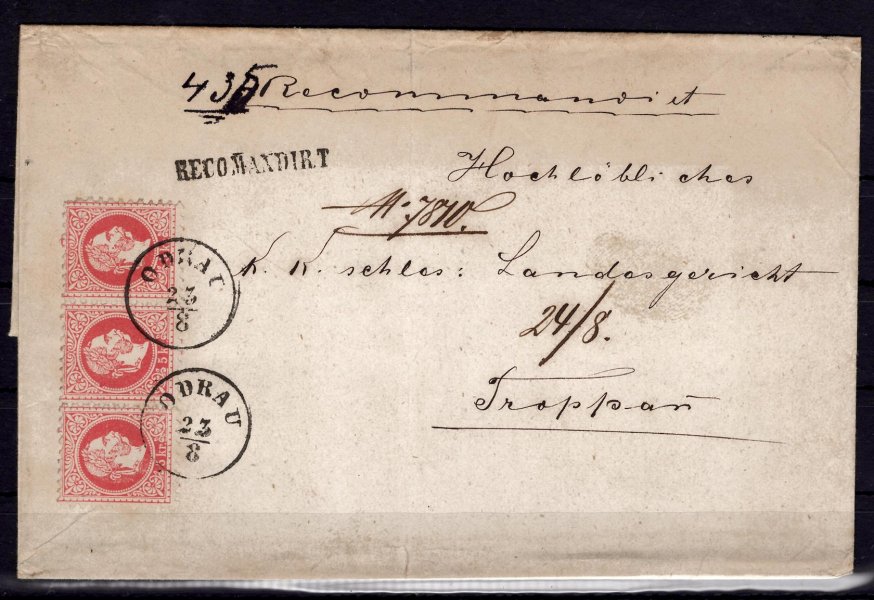 435 Recommandirt
RECOMANDIRT
Hochlöbliches
N. 7810.
K. K. schles: Landesgericht
24/8.
Troppau
ODRAU
23/8
5 kr.
ODRAU
23/8
5 kr.